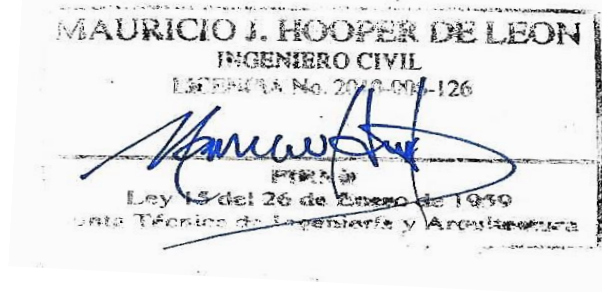 MAURICIO J. HOOPER DE LEON
INGENIERO CIVIL
LICENCIA No. 2018-006-126
Mauricio
FIRMA
Ley 15 del 26 de Enero de 1959
Junta Técnica de Ingeniería y Arquitectura